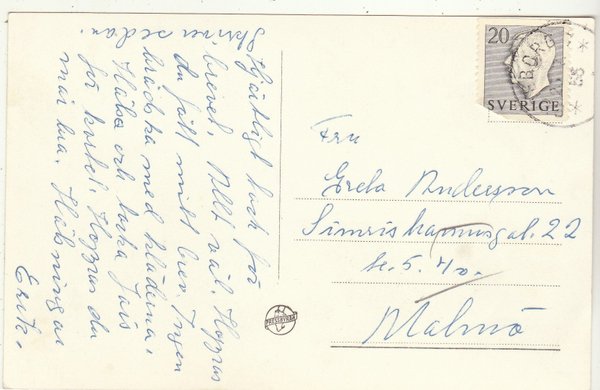 Hjärtligt tack för
brevet. Allt väl. Hoppas
du fått mitt brev. Ingen
brådska med kläderna.
Hälsa och tacka Jais
för kortet. Hoppas du
mår bra. Hälsningar
Erik.
Skriver sedan.
20
SVERIGE
BORG
Fru
Greta Andersson
Simrishamnsgat. 22
4 v.
Malmö